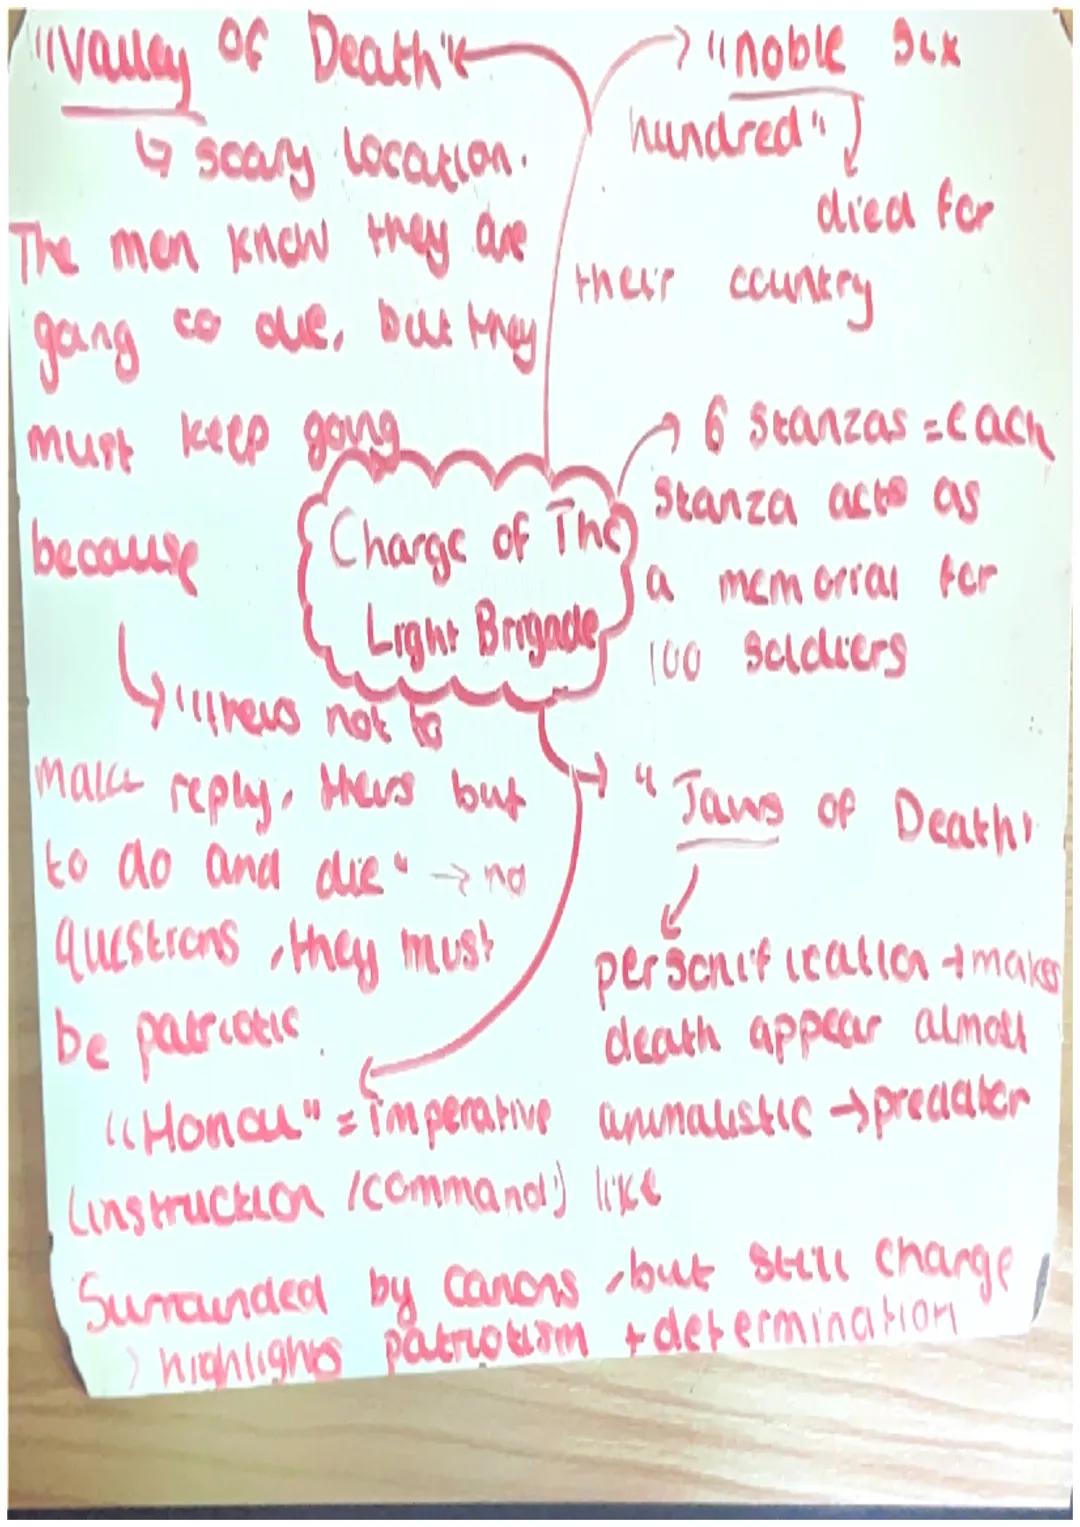 "Valley of Death"
↳ scary location.
The men know they are
going to die, but they
must keep going
because
↳ "theirs not to
make reply, theirs but
to do and die" → no
questions, they must
be patriotic.
→ "noble six
hundred"
died for
their country
→ 6 stanzas = each
stanza acts as
a memorial for
100 soldiers
Charge of The
Light Brigade
→ "Jaws of Death"
personification → makes
death appear almost
animalistic → predator
like
"Honou" = imperative
(instruction / command!)
Surrounded by canons, but still charge
> highlights patriotism + determination